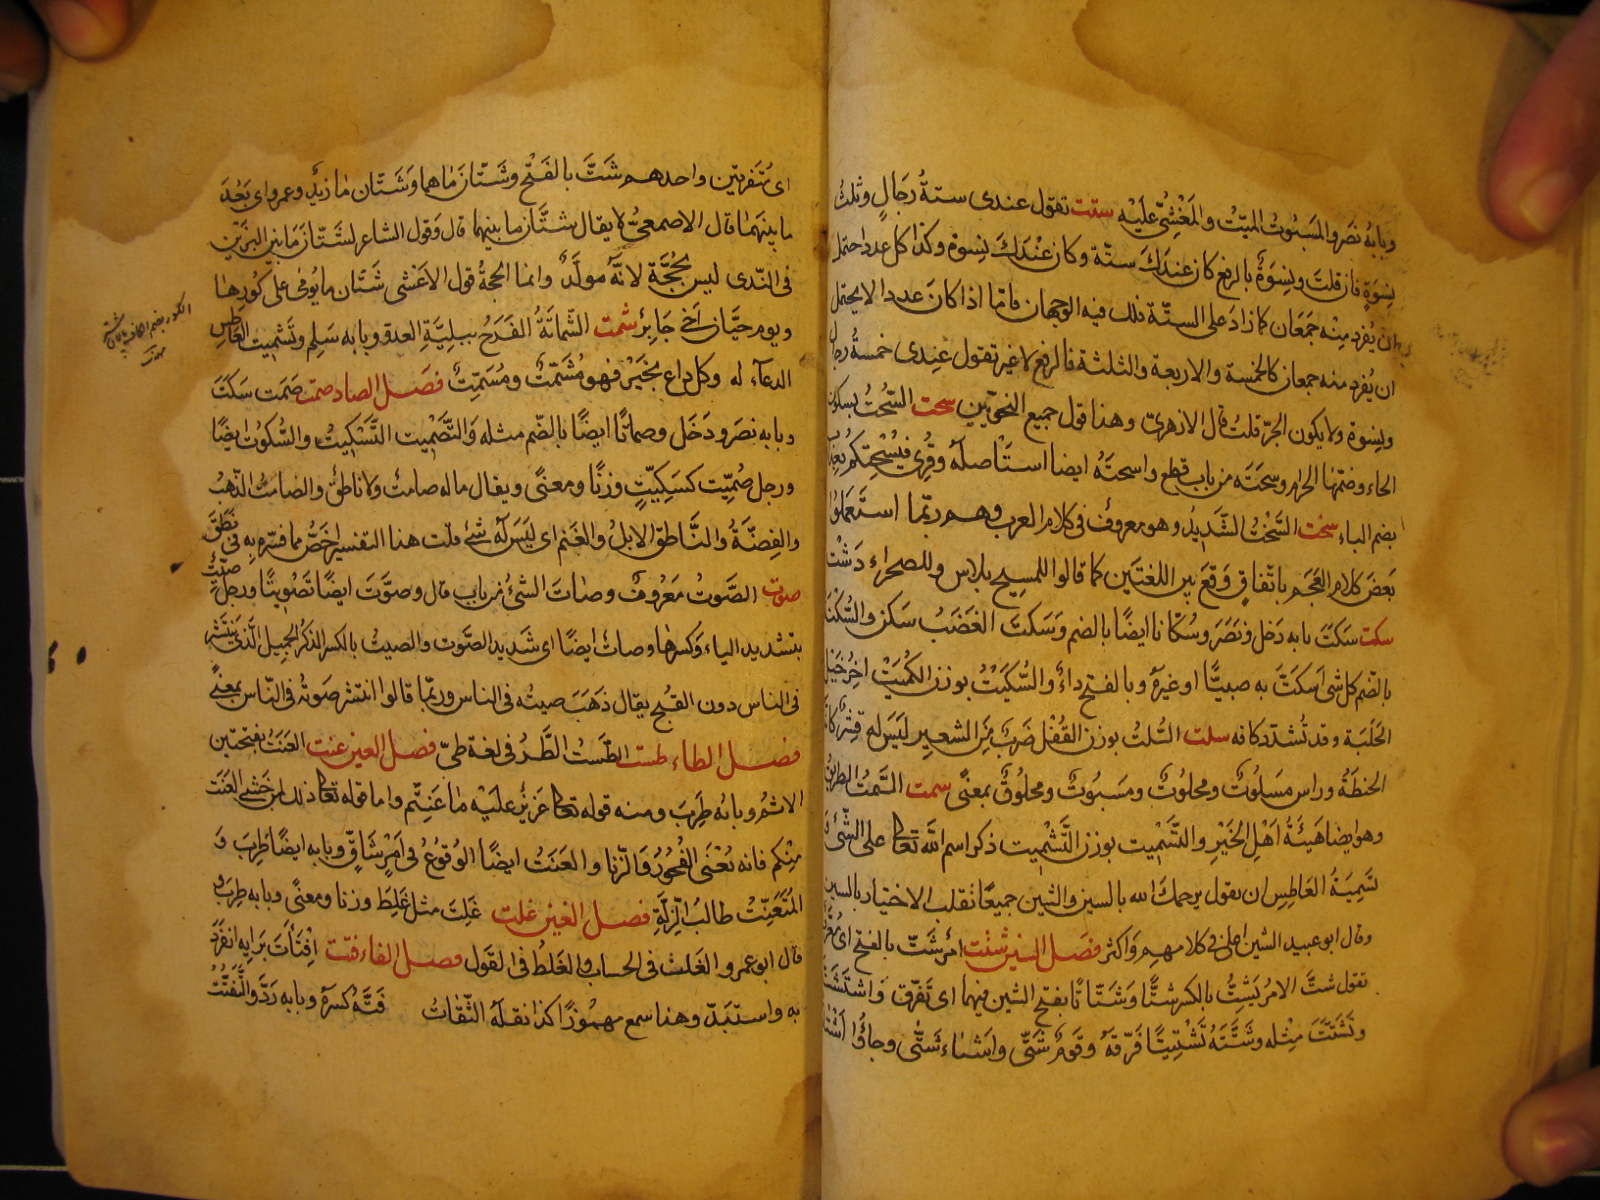 وبابه نصر والمسبوت الميّت والمغشيّ عليه ستت تقول عندى ستة رجال وثلث
نسوة فان قلت ونسوة بالرفع كان عندك ستّة وكان عندك نسوة وكذا كل عدد احتمل
ان يفرد منه جمعان مما زاد على الستّة فلك فيه الوجهان فامّا اذا كان عددا لا يحتمل
ان يفرد منه جمعان كالخمسة والاربعة والثلثة فالرفع لا غير تقول عندى خمسة رجال
ونسوة ولا يكون الجرّ قلت قال الازهرىّ وهذا قول جميع النحويّين سحت السّحت بسكون
الحاء وضمّها الحرام وسحته من باب قطع واسحته ايضا استأصله وقرئ فيسحتكم بعذاب
بضم الياء سخت السّخت الشّديد وهو معروف فى كلام العرب وهم ربّما استعملوا
بعض كلام العجم باتّفاق وقع بين اللغتين كما قالوا للمسيح بلاس وللصحراء دشت
سكت سكت بابه دخل ونصر وسكاتا ايضا بالضم وسكت الغضب سكن والسّكتة
بالضم كل شئ اسكتّ به صبيّا او غيره وبالفتح داء والسّكيت بوزن الكميت اخر خيل
الحلبة وقد تشدد كافه سلت السّلت بوزن القفل ضرب من الشعير ليس له قشر كانّه
الحنطة وراس مسلوت ومحلوت ومسبوت ومحلوق بمعنى سمت السّمت الطريق
وهو ايضا هيئة اهل الخير والتّسميت بوزن التّشميت ذكر اسم الله تعالى على الشّئ
تسمية العاطس ان يقول يرحمك الله بالسين والشين جميعا ثعلب الاختيار بالسين
وقال ابو عبيد الشين اعلى فى كلامهم واكثر فصل الشين شتت امر شتّ بالفتح اى متفرّق
تقول شتّ الامر يشتّ بالكسر شتّا وشتاتا بفتح الشين فيهما اى تفرّق واستشتّ
وتشتّت مثله وشتّته تشتيتا فرّقه وقوم شتّى واشياء شتّى وجاؤا اشتاتا
اى متفرقين واحدهم شتّ بالفتح وشتّان ما هما وشتّان ما زيد وعمرو اى بعد
ما بينهما قال الاصمعىّ لا يقال شتّان ما بينهما قال وقول الشاعر لشتّان ما بين اليزيدين
فى النّدى ليس بحجّة لانّه مولّد وانما الحجّة قول الاعشى شتّان ما يومى على كورها
ويوم حيّان اخى جابر شمت الشّماتة الفرح ببليّة العدو وبابه سلم وتشميت العاطس
الدعاء له وكل داع بخير فهو مشمّت ومسمّت فصل الصاد صمت صمت سكت
وبابه نصر ودخل وصماتا ايضا بالضّم مثله والتّصميت التّسكيت والسّكوت ايضا
ورجل صمّيت كسكّيت وزنا ومعنى ويقال ماله صامت ولا ناطق والصامت الذّهب
والفضّة والنّاطق الابل والغنم اى ليس له شئ قلت هذا التفسير اخصّ مما فسّره به فى نطق
صوت الصّوت معروف وصات الشئ من باب قال وصوّت ايضا تصويتا ورجل صيّت
بتشديد الياء وكسرها وصات ايضا اى شديد الصّوت والصيت بالكسر الذكر الجميل الّذى ينتشر
فى الناس دون القبيح يقال ذهب صيته فى الناس وربّما قالوا انتشر صوته فى النّاس بمعنى
فصل الطاء طست الطّست الطّسّ فى لغة طىّ فصل العين عنت العنت بفتحتين
الاثم وبابه طرب ومنه قوله تعالى عزيز عليه ما عنتّم واما قوله تعالى ذلك لمن خشى العنت
منكم فانه يعنى الفجور والزّنا والعنت ايضا الوقوع فى امر شاقّ وبابه ايضا طرب و
المتعنّت طالب الزّلّة فصل الغين غلت غلت مثل غلط وزنا ومعنى وبابه طرب و
قال ابو عمرو الغلت فى الحساب والغلط فى القول فصل الفاء فتت افتأت برايه انفرد
به واستبدّ وهذا سمع مهموزا كذا نقله الثّقات فتّه كسره وبابه ردّ والتّفتّت